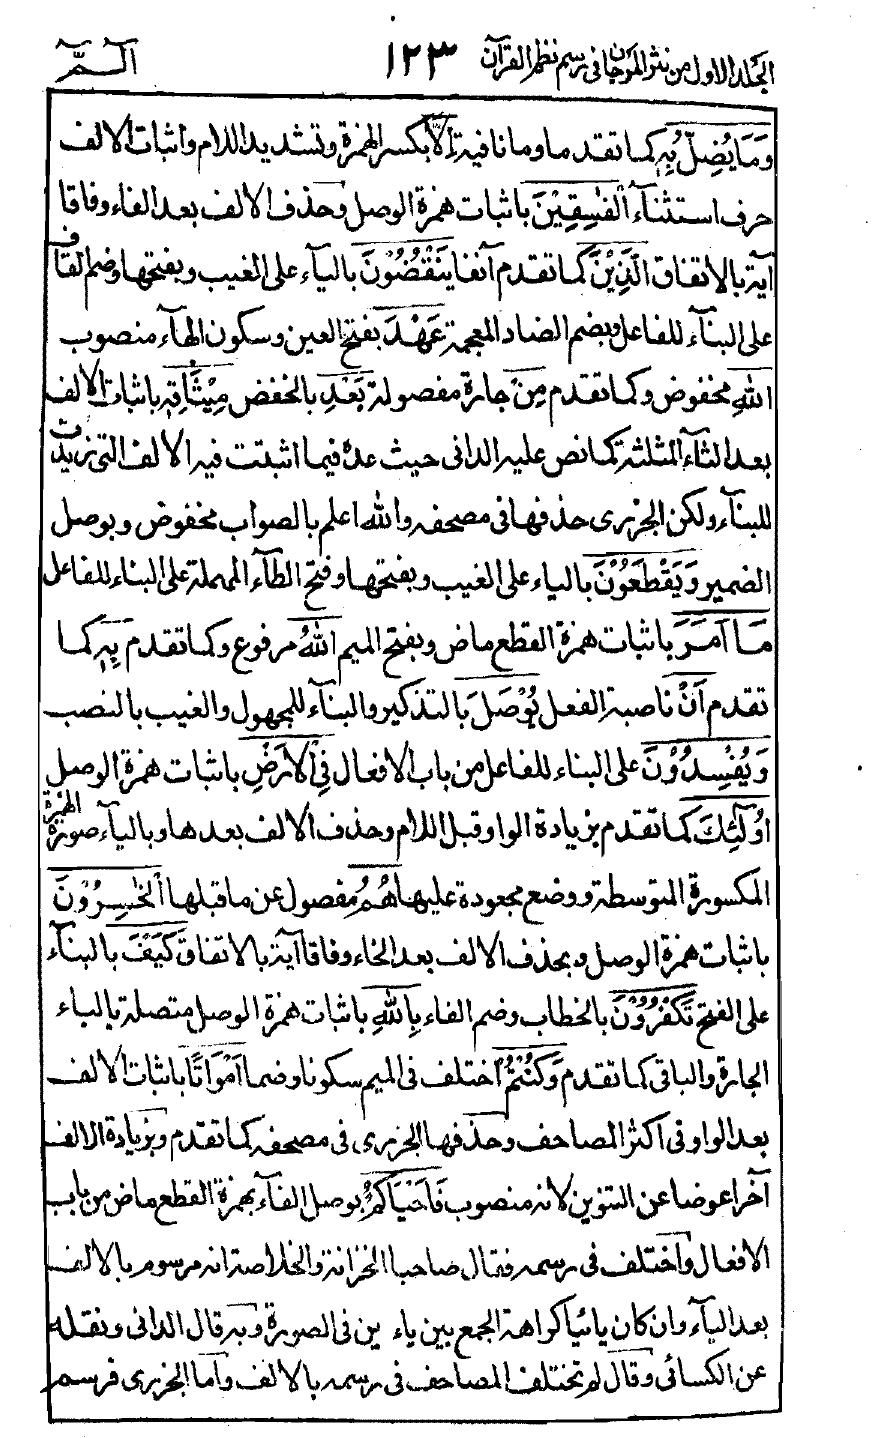 الجلد الاول من نثر المرجان في رسم نظم القرآن ١٢٣ الٓـمّٓ
وَمَا يُضِلُّ بِهٖ كما تقدم ما وما نافية اِلَّا بكسر الهمزة وتشديد اللام واثبات الالف
حرف استثنآء الْفٰسِقِيْنَ باثبات همزة الوصل وحذف الالف بعد الفاء وفاقا
آية بالاتفاق الَّذِيْنَ كما تقدم آنفا يَنْقُضُوْنَ باليآء على الغيب وبفتحها وضم القاف
على البنآء للفاعل وبضم الضاد المعجمة عَهْدَ بفتح العين وسكون الهآء منصوب
اللهِ مخفوض وكما تقدم مِنْ جارة مفصولة بَعْدِ بالخفض مِيْثَاقِهٖ باثبات الالف
بعد الثآء المثلثة كما نص عليه الدانى حيث عده فيما اثبتت فيه الالف التى زيدت
للبنآء ولكن الجزرى حذفها فى مصحفه والله اعلم بالصواب مخفوض وبوصل
الضمير وَيَقْطَعُوْنَ بالياء على الغيب وبفتحها وفتح الطآء المهملة على البناء للفاعل
مَا اَمَرَ باثبات همزة القطع ماض وبفتح الميم اللهُ مرفوع وكما تقدم بِهٖ كما
تقدم اَنْ ناصبة الفعل يُوْصَلَ بالتذكير والبنآء للمجهول والغيب بالنصب
وَيُفْسِدُوْنَ على البناء للفاعل من باب الافعال فِي الْاَرْضِ باثبات همزة الوصل
اُولٰٓئِكَ كما تقدم بزيادة الواو قبل اللام وحذف الالف بعدها وباليآء صورة الهمزة
المكسورة المتوسطة ووضع مجعودة عليها هُمُ مفصول عن ما قبلها الْخٰسِرُوْنَ
باثبات همزة الوصل وبحذف الالف بعد الخاء وفاقا آية بالاتفاق كَيْفَ بالبنآء
على الفتح تَكْفُرُوْنَ بالخطاب وضم الفاء بِاللهِ باثبات همزة الوصل متصلة بالباء
الجارة والباقى كما تقدم وَكُنْتُمْ اختلف فى الميم سكونا وضما اَمْوَاتًا باثبات الالف
بعد الواو فى اكثر المصاحف وحذفها الجزرى فى مصحفه كما تقدم وبزيادة الالف
آخرا عوضا عن التنوين لانه منصوب فَاَحْيَاكُمْ بوصل الفآء بهمزة القطع ماض من باب
الافعال واختلف فى رسمه فقال صاحبا الخزانة والخلاصة انه مرسوم بالالف
بعد اليآء وان كان يائيا كراهة الجمع بين ياء ين فى الصورة وبه قال الدانى ونقله
عن الكسائى وقال لم تختلف المصاحف فى رسمه بالالف واما الجزرى فرسم